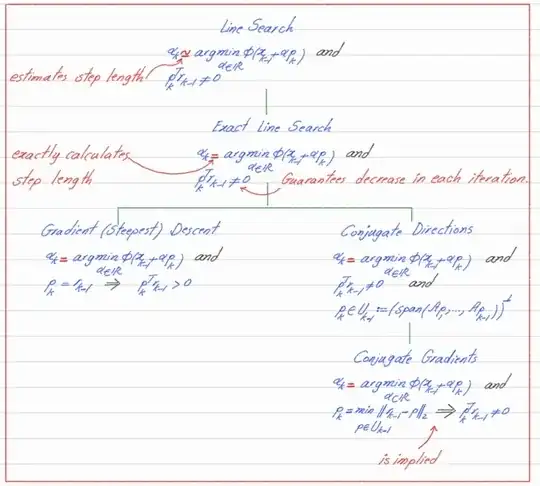 Line Search
α_k ≃ argmin φ(x_{k-1}+αp_k) and
α∈ℝ
estimates step length
p_k^T r_{k-1} ≠ 0
Exact Line Search
exactly calculates
step length
α_k = argmin φ(x_{k-1}+αp_k) and
α∈ℝ
p_k^T r_{k-1} ≠ 0
Guarantees decrease in each iteration.
Gradient (Steepest) Descent
α_k = argmin φ(x_{k-1}+αp_k) and
α∈ℝ
p_k = r_{k-1} ⇒ p_k^T r_{k-1} > 0
Conjugate Directions
α_k = argmin φ(x_{k-1}+αp_k) and
α∈ℝ
p_k^T r_{k-1} ≠ 0 and
p_k ∈ U_{k-1} := (span(Ap_1,..., Ap_{k-1}))^⊥
Conjugate Gradients
α_k = argmin φ(x_{k-1}+αp_k) and
α∈ℝ
p_k = min ‖r_{k-1} - p‖_2 ⇒ p_k^T r_{k-1} ≠ 0
p∈U_{k-1}
is implied